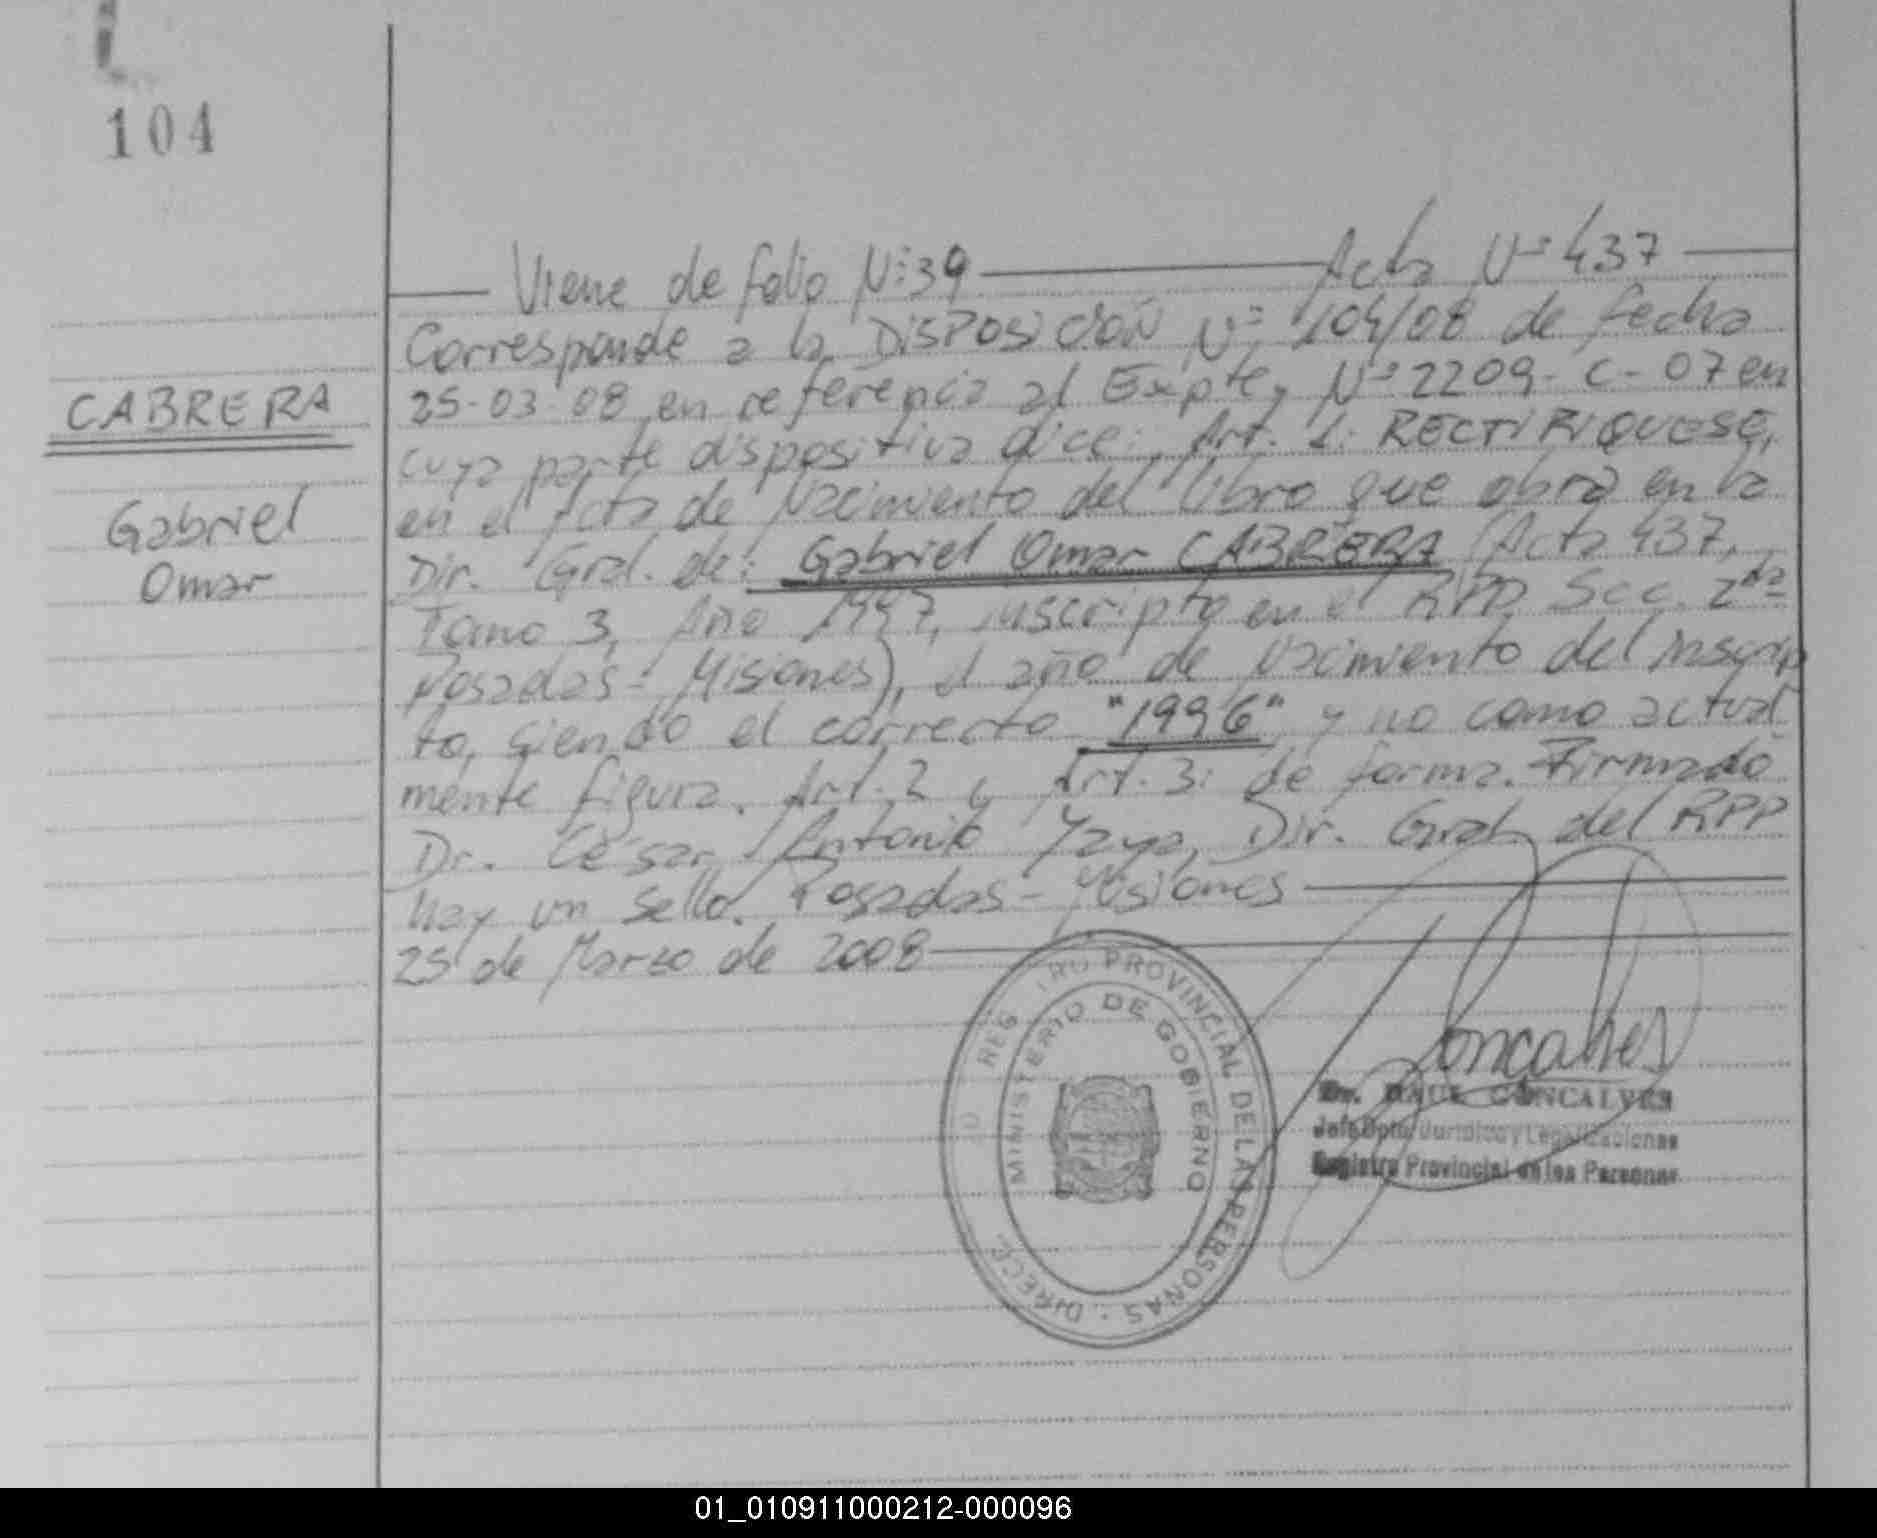 104
Viene de folio Nº 39 Acta Nº 437
CABRERA
Gabriel
Omar
Corresponde a la DISPOSICIÓN Nº 104/08 de fecha
25-03-08 en referencia al Expte, Nº 2209-C-07 en
cuya parte dispositiva dice: Art. 1: RECTIFIQUESE,
en el Acta de Nacimiento del libro que obra en la
Dir. Gral. de: Gabriel Omar CABRERA (Acta 437,
Tomo 3, Año 1997, inscripto en el RPP Sec. 2da
Posadas - Misiones), el año de Nacimiento del inscrip
to, siendo el correcto "1996" y no como actual
mente figura. Art. 2 y Art. 3: de forma. Firmado
Dr. César Antonio Yaya, Dir. Gral. del RPP
hay un sello. Posadas - Misiones
25 de Marzo de 2008
REG TRO PROVINCIAL DE LAS PERSONAS · DIRECC
MINISTERIO DE GOBIERNO
Goncalves
Dr. RAUL GONCALVES
Jefe Dpto Juridico y Legalizaciones
Registro Provincial de las Personas
01_010911000212-000096